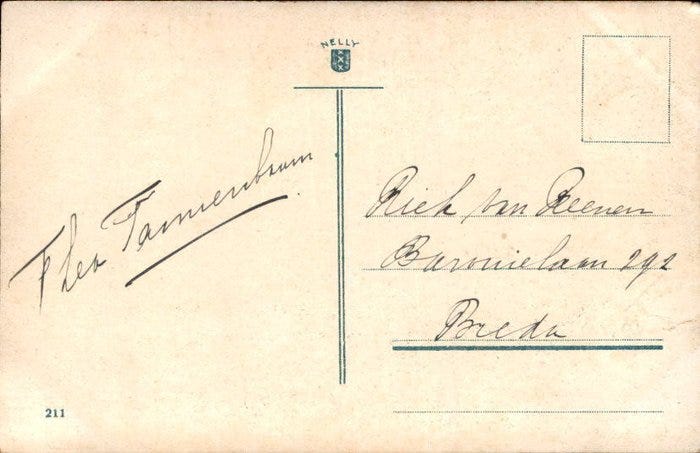 NELLY
XXX
Theo Tannenbaum
Riek van Reenen
Baronielaan 292
Breda
211